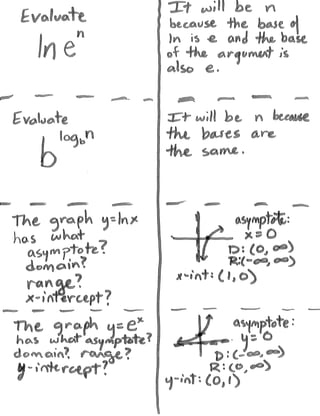 Evaluate
ln eⁿ
It will be n
because the base of
ln is e and the base
of the argument is
also e.
Evaluate
b^(log_b n)
It will be n because
the bases are
the same.
The graph y=lnx
has what
asymptote?
domain?
range?
x-intercept?
asymptote:
x=0
D: (0, ∞)
R: (-∞, ∞)
x-int: (1,0)
The graph y=eˣ
has what asymptote?
domain? range?
y-intercept?
asymptote:
y=0
D: (-∞, ∞)
R: (0, ∞)
y-int: (0,1)